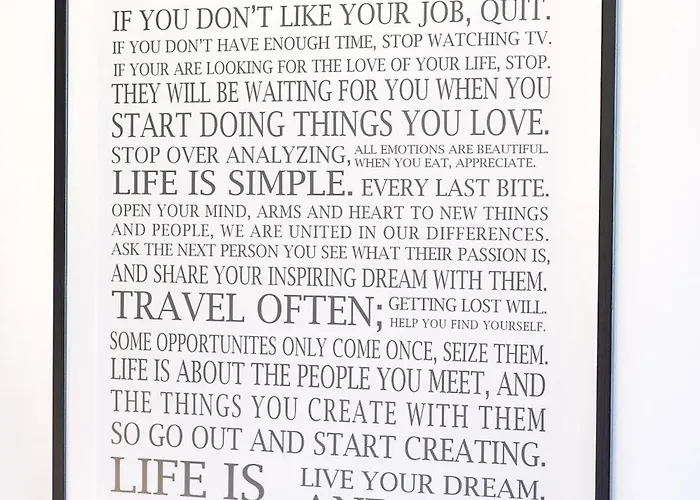 IF YOU DON'T LIKE YOUR JOB, QUIT.
IF YOU DON'T HAVE ENOUGH TIME, STOP WATCHING TV.
IF YOUR ARE LOOKING FOR THE LOVE OF YOUR LIFE, STOP.
THEY WILL BE WAITING FOR YOU WHEN YOU
START DOING THINGS YOU LOVE.
STOP OVER ANALYZING, ALL EMOTIONS ARE BEAUTIFUL.
WHEN YOU EAT, APPRECIATE.
LIFE IS SIMPLE. EVERY LAST BITE.
OPEN YOUR MIND, ARMS AND HEART TO NEW THINGS
AND PEOPLE, WE ARE UNITED IN OUR DIFFERENCES.
ASK THE NEXT PERSON YOU SEE WHAT THEIR PASSION IS,
AND SHARE YOUR INSPIRING DREAM WITH THEM.
TRAVEL OFTEN; GETTING LOST WILL.
HELP YOU FIND YOURSELF.
SOME OPPORTUNITES ONLY COME ONCE, SEIZE THEM.
LIFE IS ABOUT THE PEOPLE YOU MEET, AND
THE THINGS YOU CREATE WITH THEM
SO GO OUT AND START CREATING.
LIFE IS LIVE YOUR DREAM.
AND